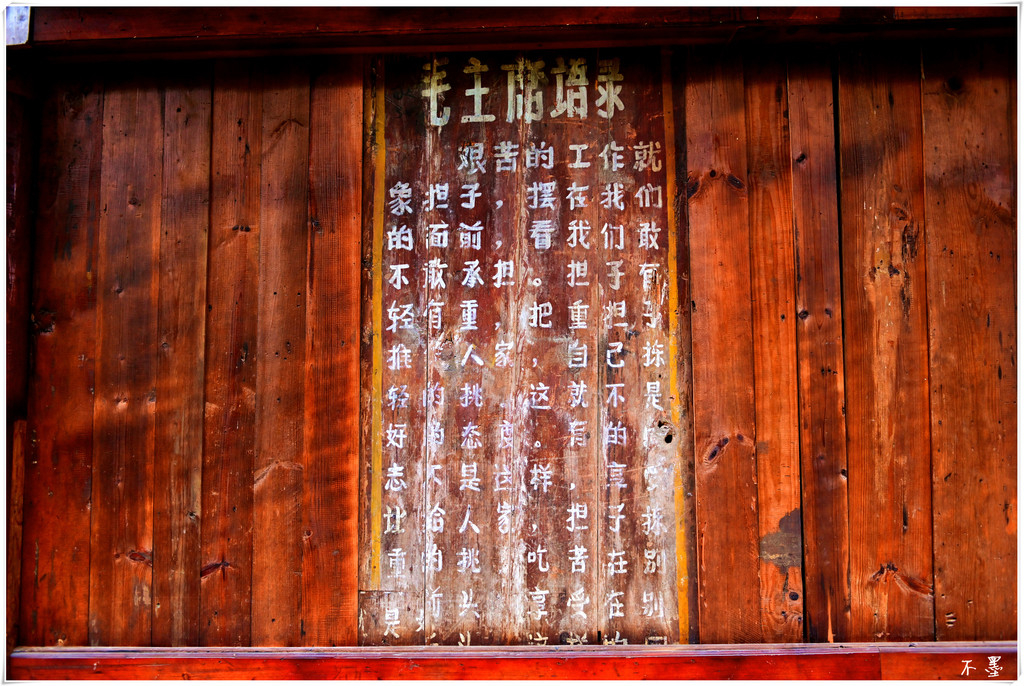 毛主席语录
艰苦的工作就
象担子，摆在我们
的面前，看我们敢
不敢承担。担子有
轻有重，把重担子
推 人家，自己拣
轻的挑。这就不是
好的态度。有的
志不是这样，享受
让给人家，担子拣
重的挑，吃苦在别
头，享受在别
不墨